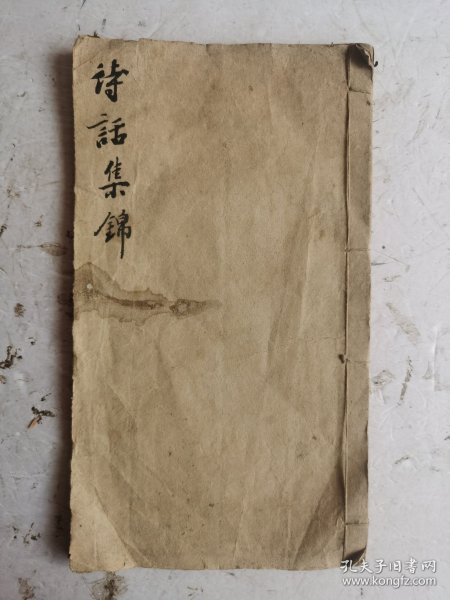 诗話集錦
孔夫子旧书网
www.kongfz.com